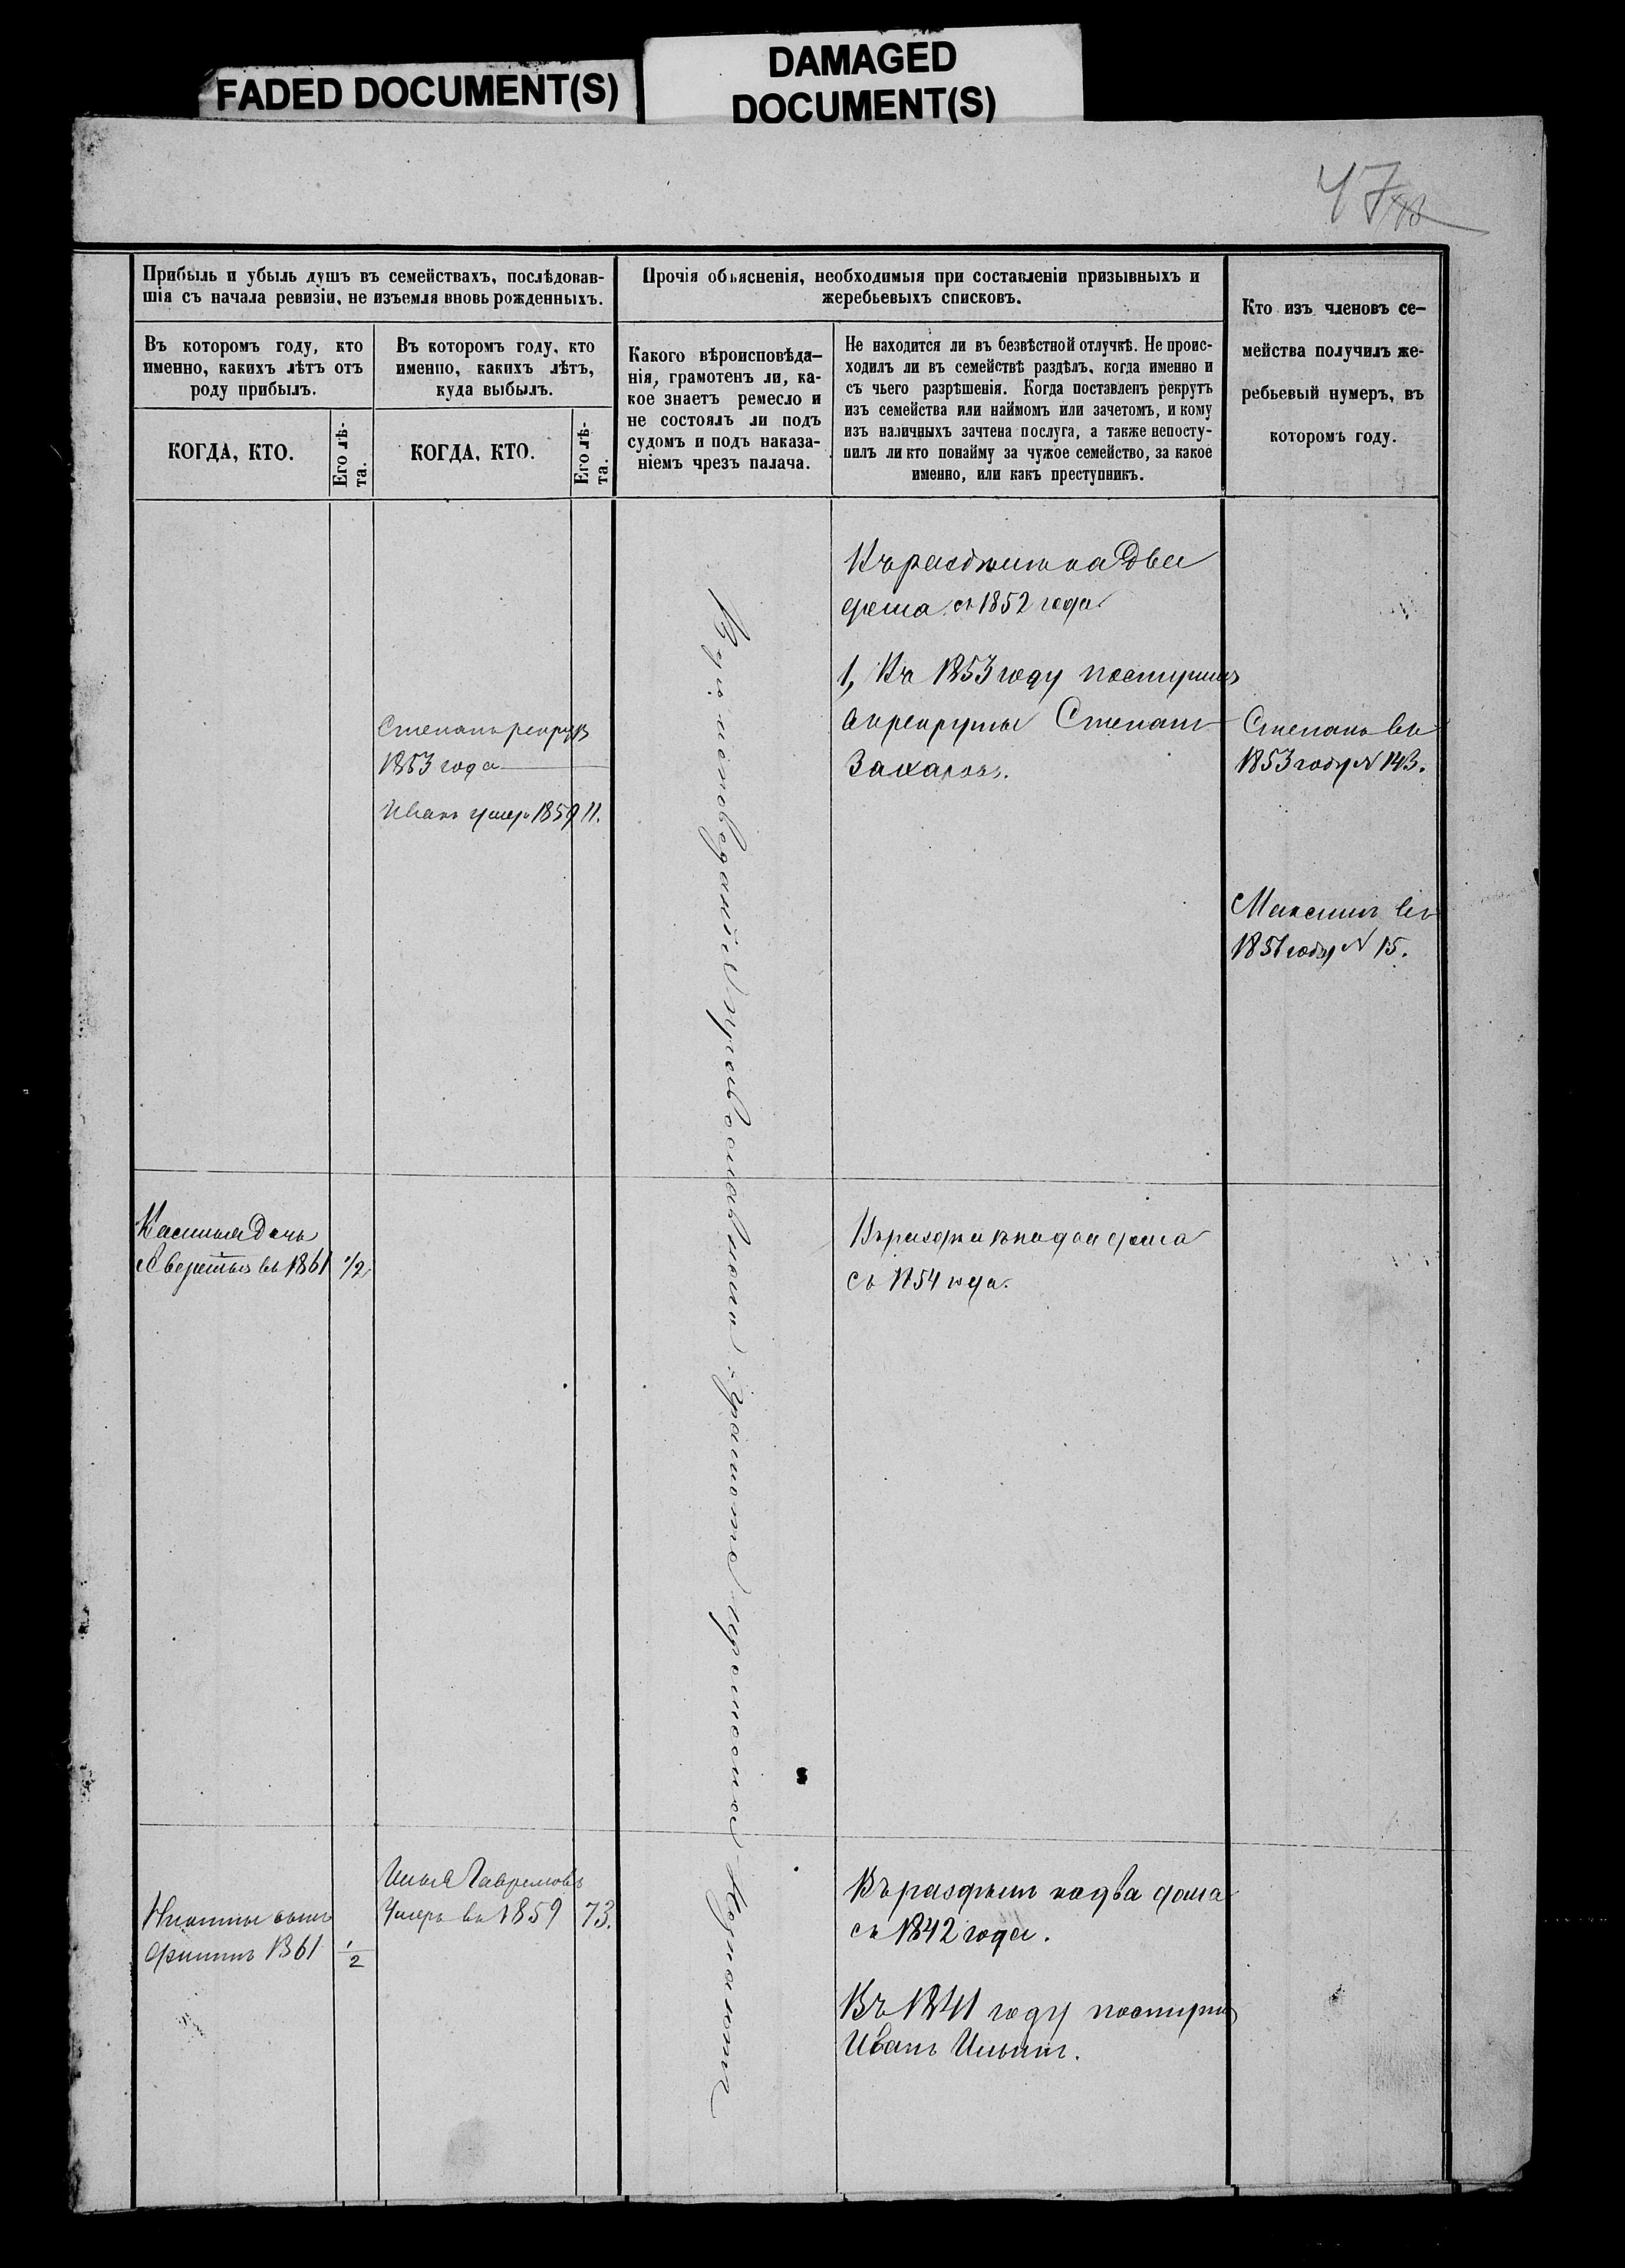 FADED DOCUMENT(S)
DAMAGED
DOCUMENT(S)
47
Прибыль и убыль душъ въ семействахъ, послѣдовав-
шія съ начала ревизіи, не изъемля вновь рожденныхъ.
Въ которомъ году, кто
именно, какихъ лѣтъ отъ
роду прибылъ.
КОГДА, КТО.
Его лѣ-
та.
Въ которомъ году, кто
именно, какихъ лѣтъ,
куда выбылъ.
КОГДА, КТО.
Его лѣ-
та.
Прочія объясненія, необходимыя при составленіи призывныхъ и
жеребьевыхъ списковъ.
Какого вѣроисповѣда-
нія, грамотенъ ли, ка-
кое знаетъ ремесло и
не состоялъ ли подъ
судомъ и подъ наказа-
ніемъ чрезъ палача.
Не находится ли въ безвѣстной отлучкѣ. Не проис-
ходилъ ли въ семействѣ раздѣлъ, когда именно и
съ чьего разрѣшенія. Когда поставленъ рекрутъ
изъ семейства или наймомъ или зачетомъ, и кому
изъ наличныхъ зачтена послуга, а также непосту-
пилъ ли кто понайму за чужое семейство, за какое
именно, или какъ преступникъ.
Кто изъ членовъ се-
мейства получилъ же-
ребьевый нумеръ, въ
которомъ году.
Въ раздѣле на два
дома съ 1852 года.
1, Въ 1853 году поступилъ
Степанъ
Захаровъ.
Степанъ рекрутъ
1853 года
Иванъ умеръ 1859 11.
Степанъ въ
1853 году N 143.
Максимъ въ
1851 году N 15.
дочь
въ 1861 1/2
Въ раздѣле на два дома
съ 1854 года.
Илья Гавриловъ
Умеръ въ 1859 73.
Никиты сынъ
1861 1/2
Въ раздѣле на два дома
съ 1842 года.
Въ 1841 году поступилъ
Иванъ Ильинъ.